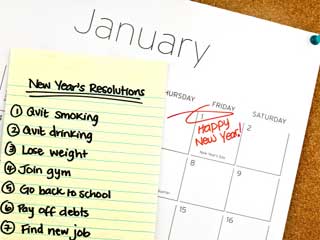 January
THURSDAY
FRIDAY
SATURDAY
1
2
Happy
New Year!
New Year's Day
8
9
15
16
New Year's Resolutions
① Quit smoking
② Quit drinking
③ Lose weight
④ Join gym
⑤ Go back to school
⑥ Pay off debts
⑦ Find new job